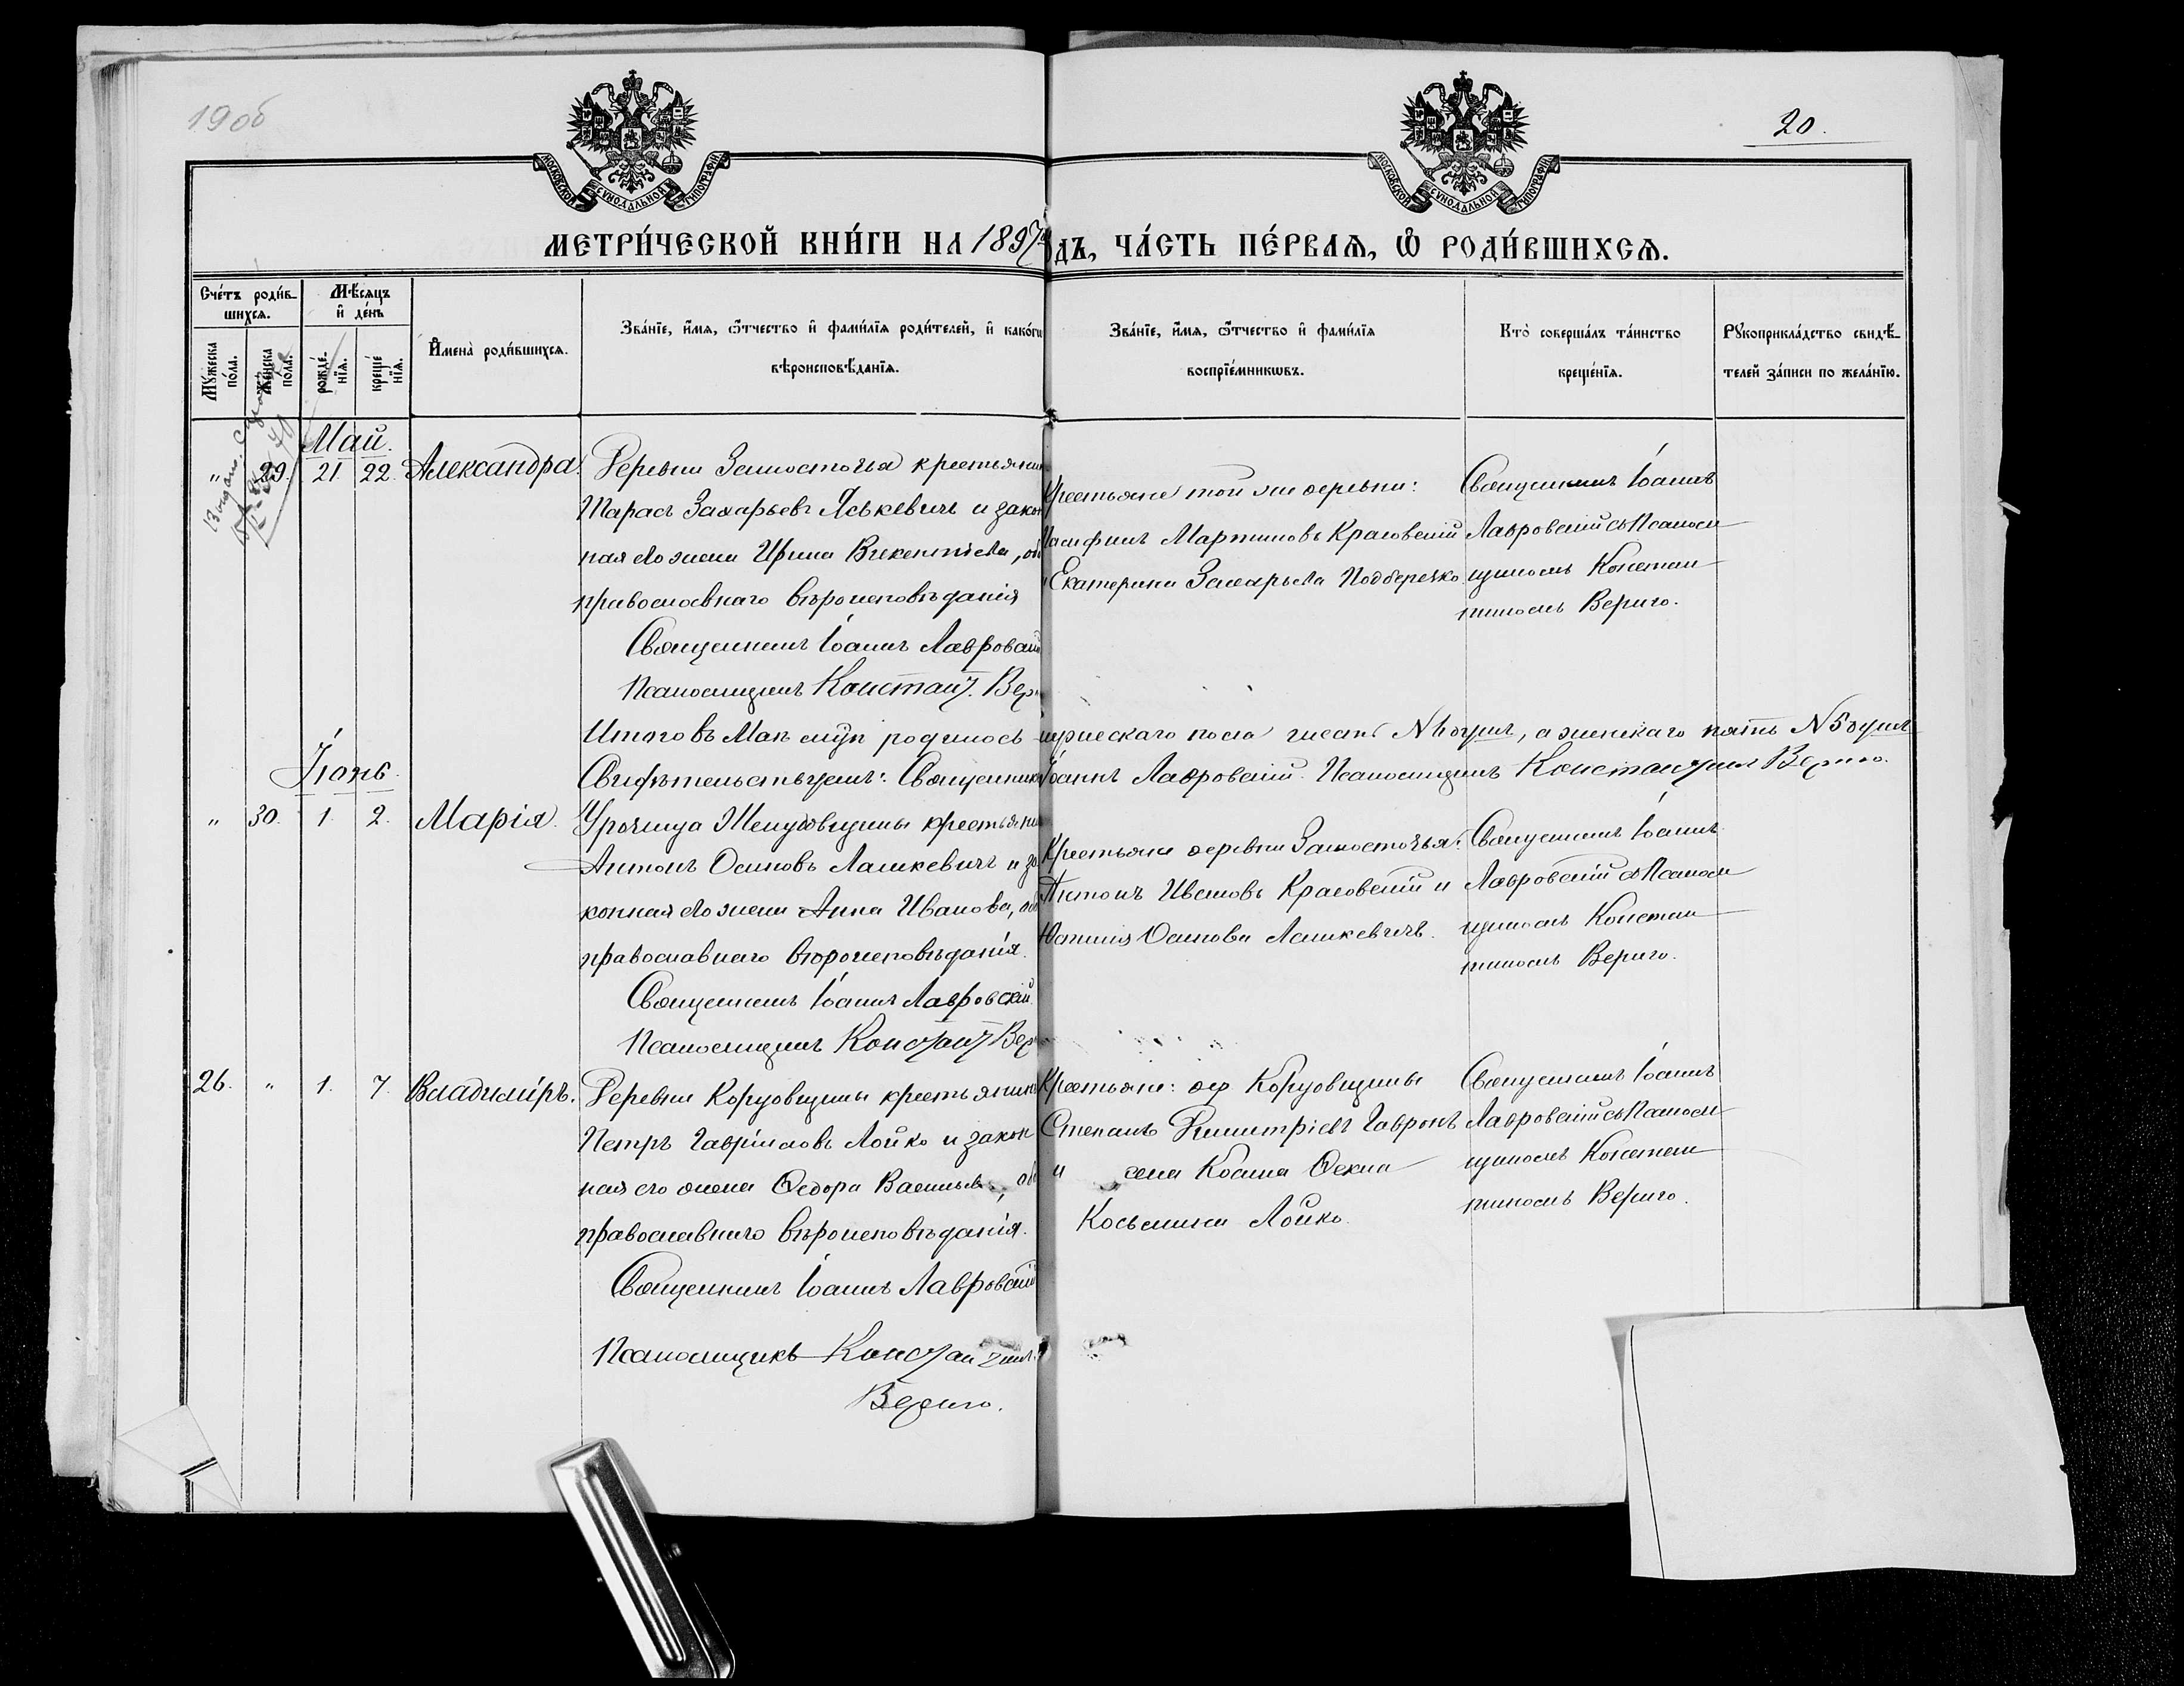 190б
20.
МОСКОВСКОЙ СѴНОДАЛЬНОЙ ТИПОГРАФІИ
МОСКОВСКОЙ СѴНОДАЛЬНОЙ ТИПОГРАФІИ
МЕТРИ́ЧЕСКОЙ КНИ́ГИ НА 1897 ГОДЪ, ЧА́СТЬ ПЕ́РВАЯ, Ѡ РОДИ́ВШИХСЯ.
Сче́тъ роди́в-
шихся.
Мѣ́сяцъ
и҆ де́нь
Мꙋ́жеска
по́ла.
Же́нска
по́ла.
рожде́-
нїѧ.
креще́-
нїѧ.
И҆мена̀ роди́вшихсѧ.
Зва́нїе, и҆́мѧ, ѻ҆́тчество и҆ фами́лїѧ роди́телей, и҆ како́гѡ
вѣроисповѣ́данїѧ.
Зва́нїе, и҆́мѧ, ѻ҆́тчество и҆ фами́лїѧ
воспрїе́мникѡвъ.
Кто̀ соверша́лъ та́инство
креще́нїѧ.
Рꙋкоприкла́дство свидѣ́-
телей за́писи по жела́нїю.
Май.
" 29. 21. 22. Александра.
Деревни Замосточья крестьянин
Тарасъ Захарьевъ Яськевичъ и закон
ная его жена Ирина Викентіева, оба
православнаго вѣроисповѣданія
Священникъ Іоаннъ Лавровскій
Псаломщикъ Констант. Вер
Крестьяне той же деревни:
Мартиновъ Красовскій
и Екатерина Захарьева Подберезко.
Священникъ Іоаннъ
Лавровскій съ Псалом
щикомъ Констан
тиномъ Вериго.
Итого въ Маѣ мцѣ родилось мужескаго пола шесть №6 душъ, а женскаго пять №5 душъ
Свидѣтельствуемъ: Священникъ Іоаннъ Лавровскій. Псаломщикъ Константинъ Вериго.
Іюнь.
" 30. 1. 2. Марія.
Урочища крестьянин
Антонъ Осиповъ Лашкевичъ и за
конная его жена Анна Иванова, оба
православнаго вѣроисповѣданія.
Священникъ Іоаннъ Лавровскій.
Псаломщикъ Констант Вер
Крестьяне деревни Замосточья:
Антонъ Ивановъ Красовскій и
Юстинія Осипова Лашкевичъ.
Священникъ Іоаннъ
Лавровскій съ Псалом
щикомъ Констан
тиномъ Вериго.
26. " 1. 7. Владиміръ.
Деревни Корзовщины крестьянинъ
Петръ Гавріиловъ Лойко и закон
ная его жена Ѳедора Васильева, оба
православнаго вѣроисповѣданія.
Священникъ Іоаннъ Лавровскій
Псаломщикъ Константинъ
Вериго.
Крестьяне: дер. Корзовщины
Степанъ Димитріевъ Гавронъ
и села Ѳекла
Косьмина Лойко.
Священникъ Іоаннъ
Лавровскій съ Псалом
щикомъ Констан
тиномъ Вериго.